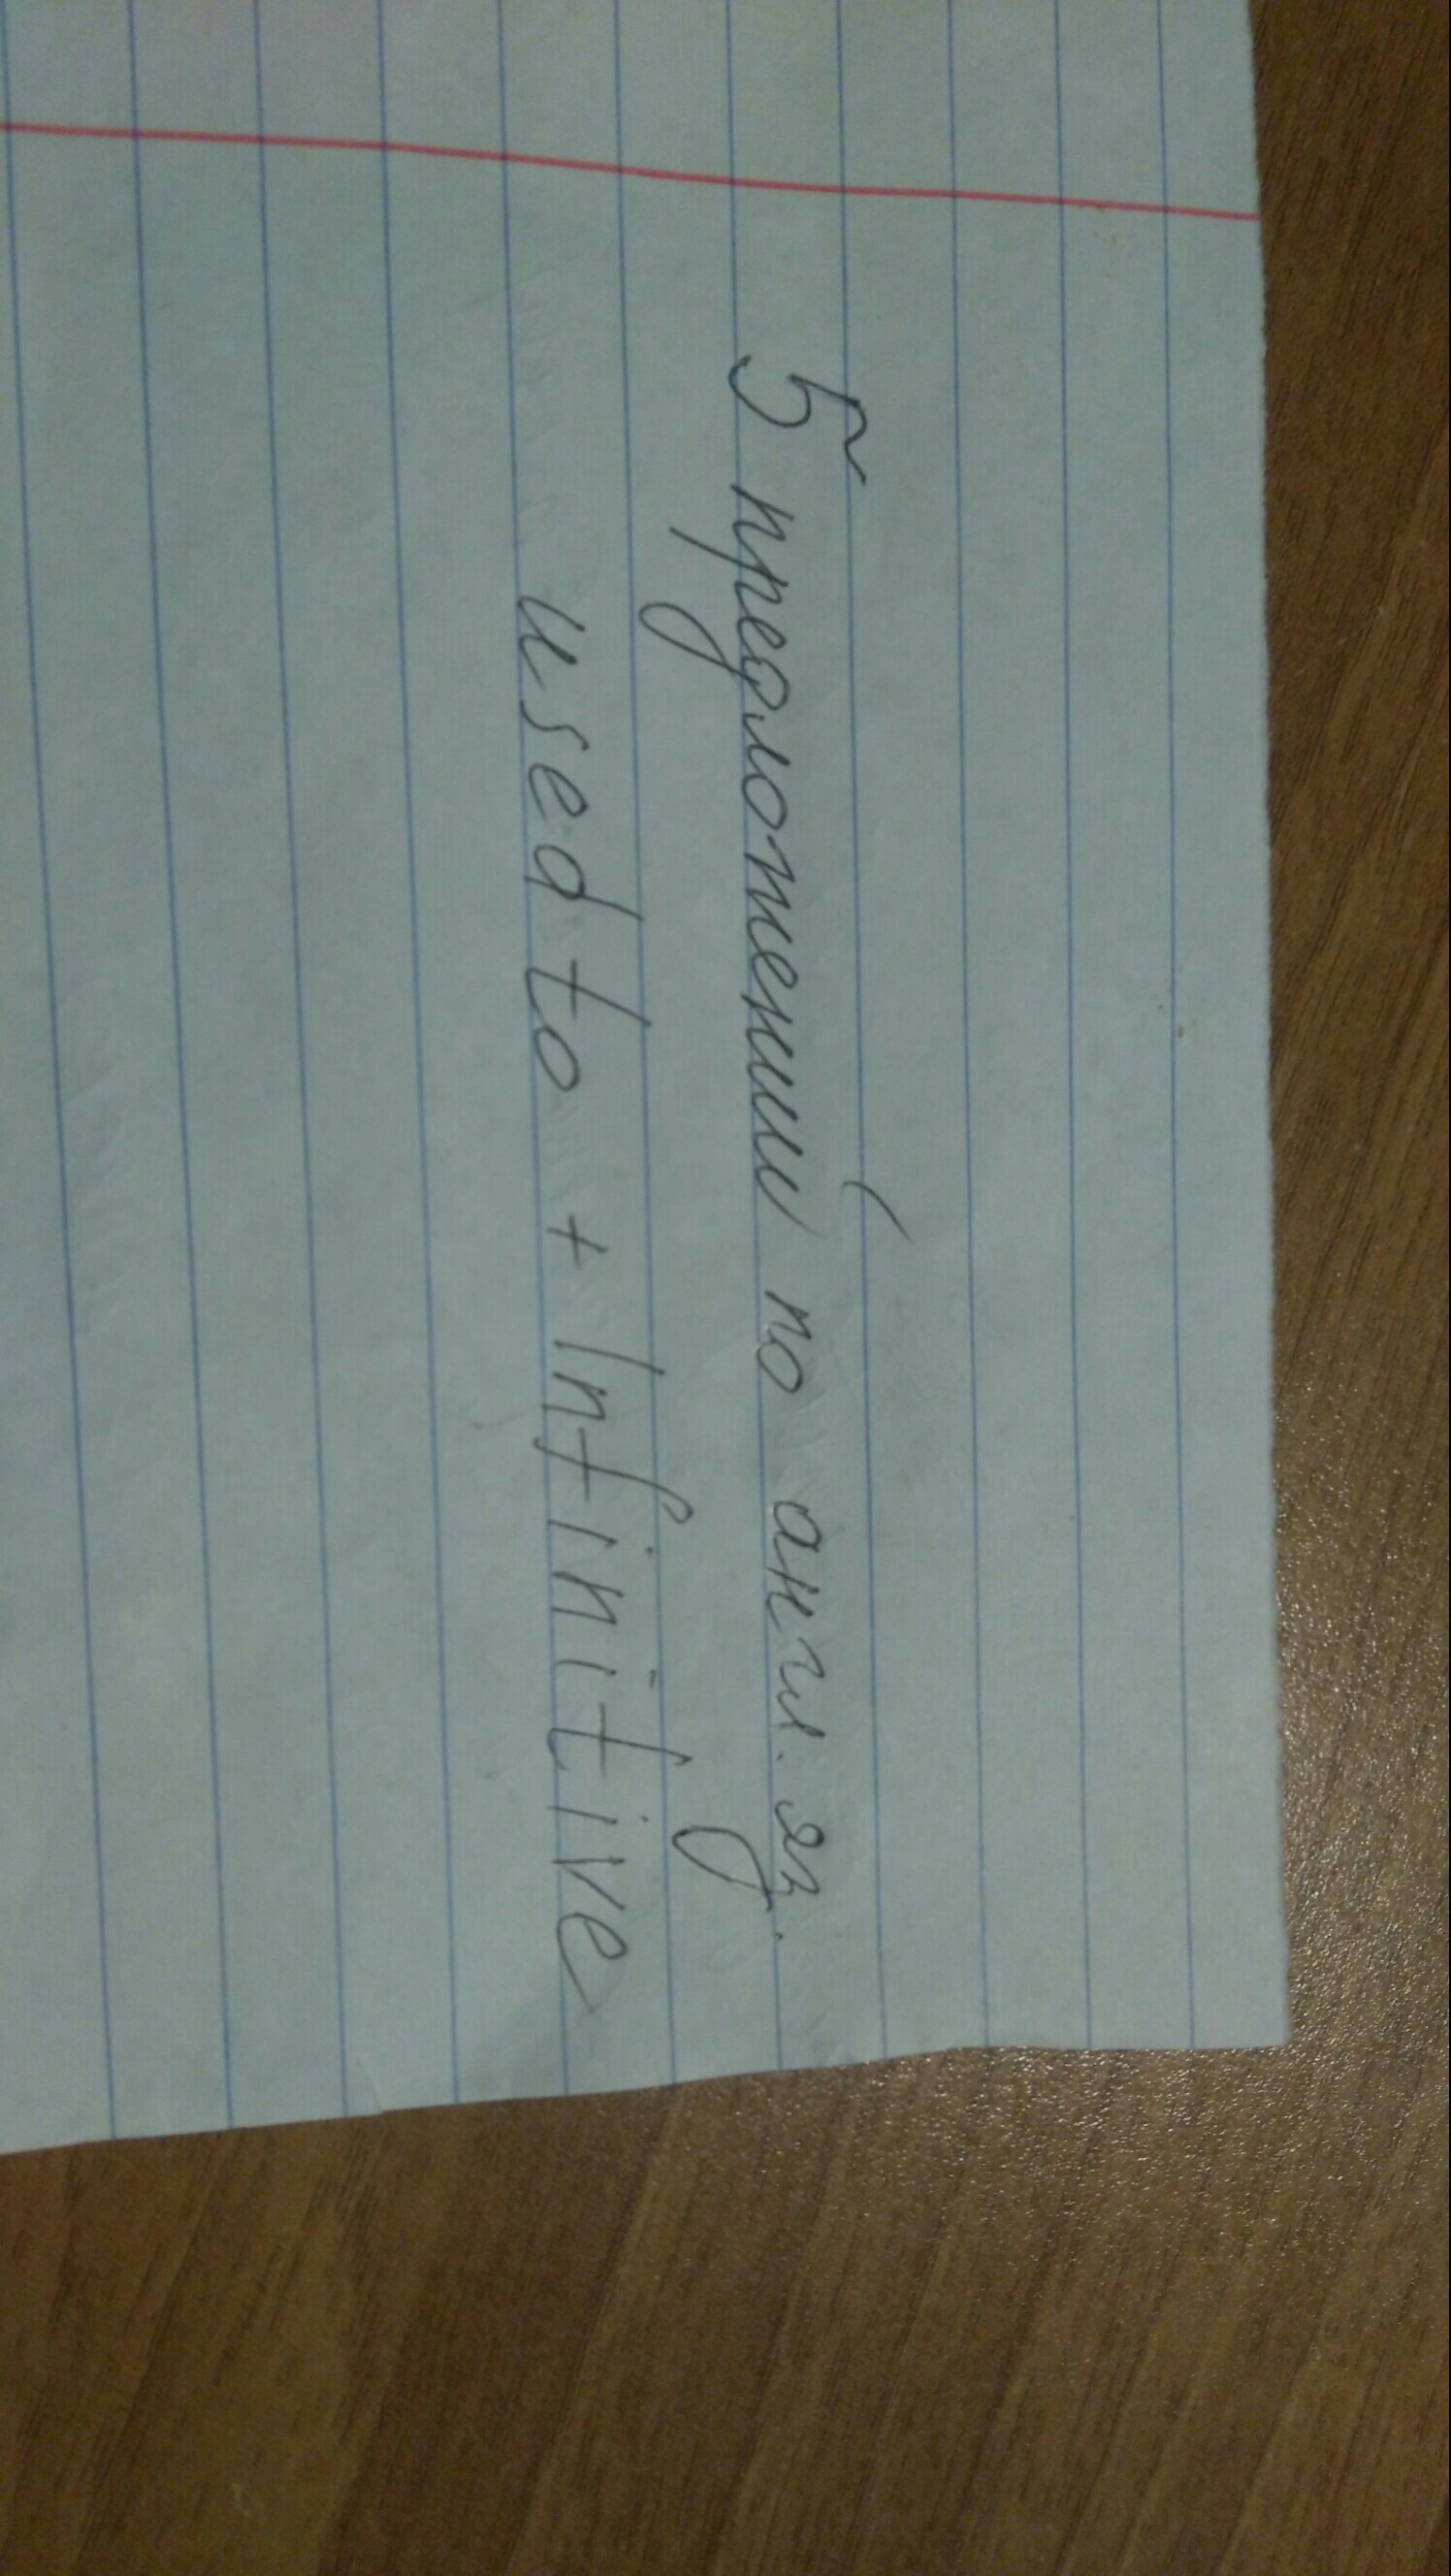 5 предложений по англ. яз.
used to + Infinitive